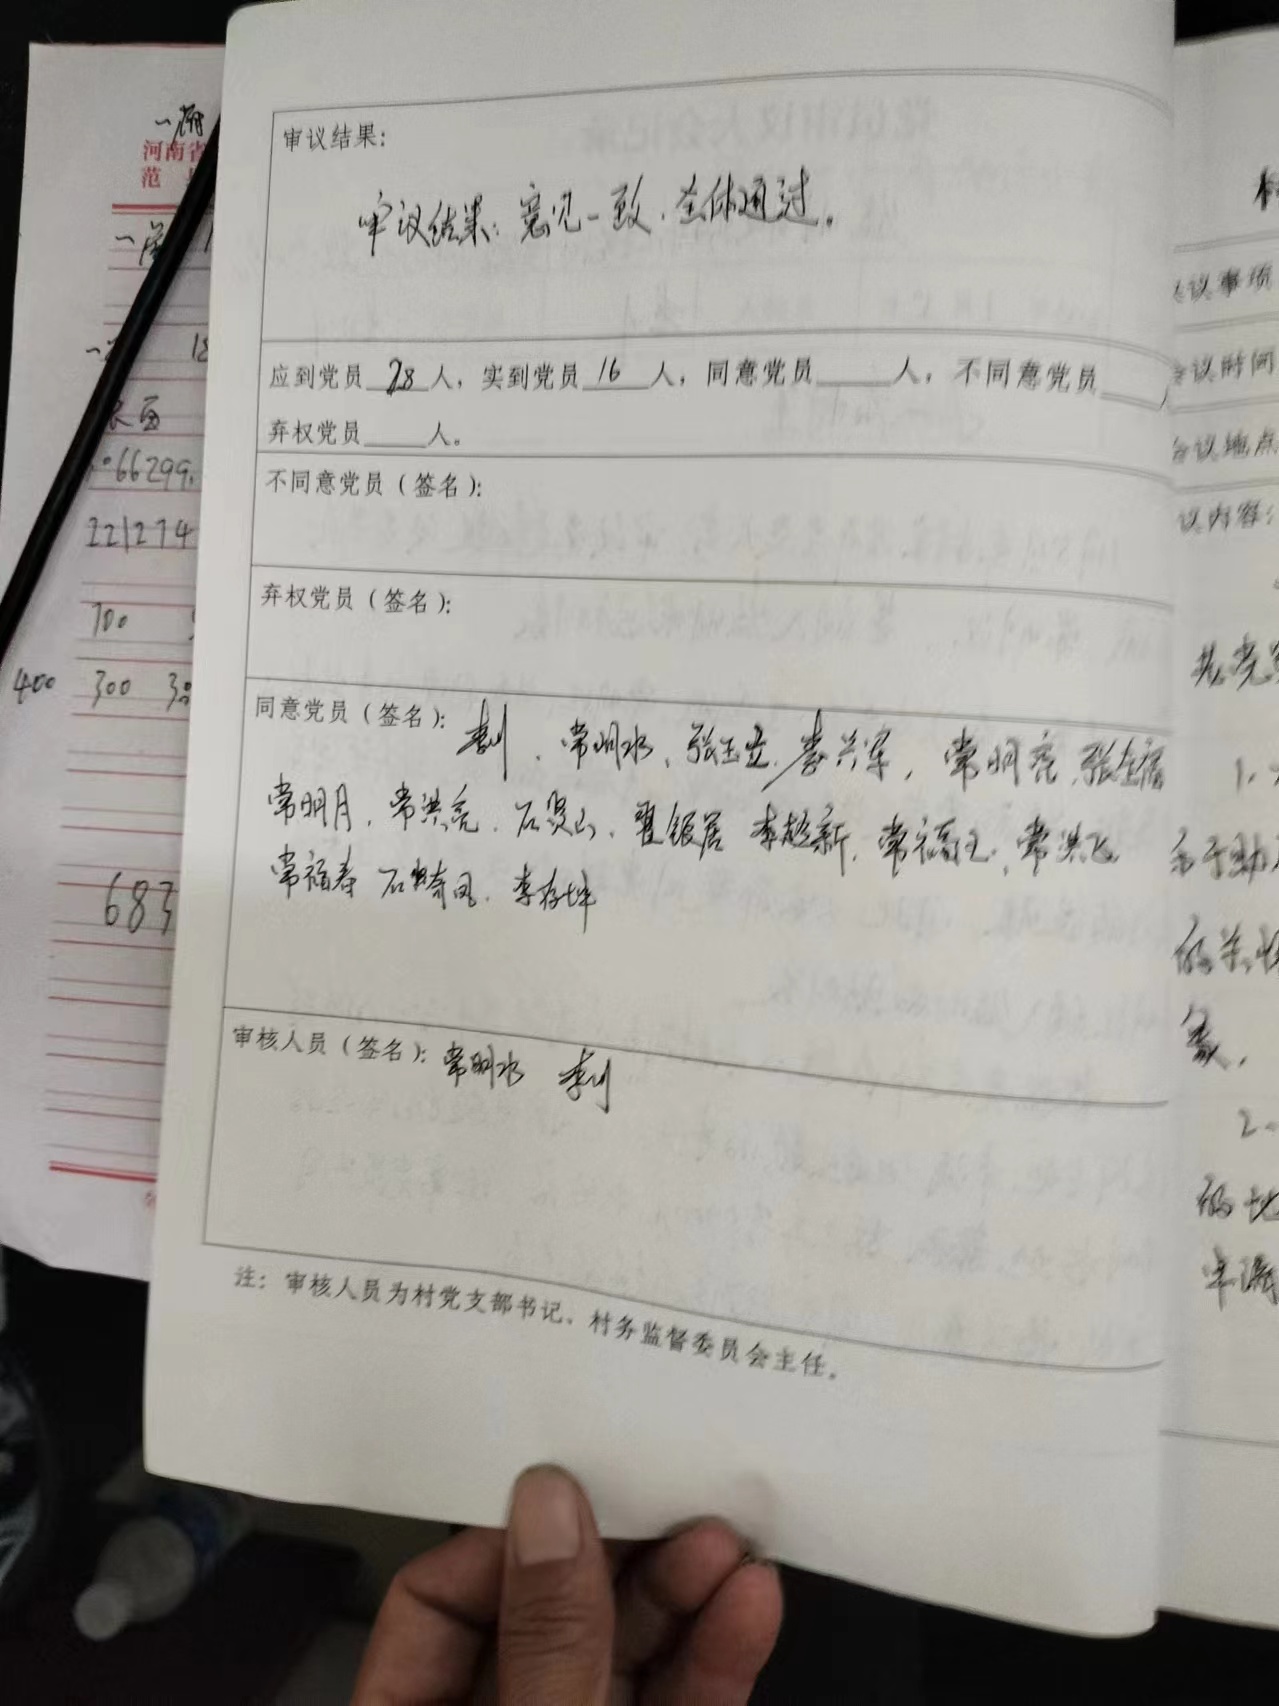 河南省
范
66299.
221274
700
400 300
683
审议结果：
审议结果：意见一致，全体通过。
应到党员 28 人，实到党员 16 人，同意党员 人，不同意党员
弃权党员 人。
不同意党员（签名）：
弃权党员（签名）：
同意党员（签名）： 常明水、张玉立、李兴军，常明亮、张全福
常明月、常洪亮、石灵山、翟银居 李超新、常福玉、常洪飞
常福寿 石 凤、李存坤
审核人员（签名）：常明水
注：审核人员为村党支部书记、村务监督委员会主任。
议事项
议时间
议地点
议内容：
1、
的
2、
的